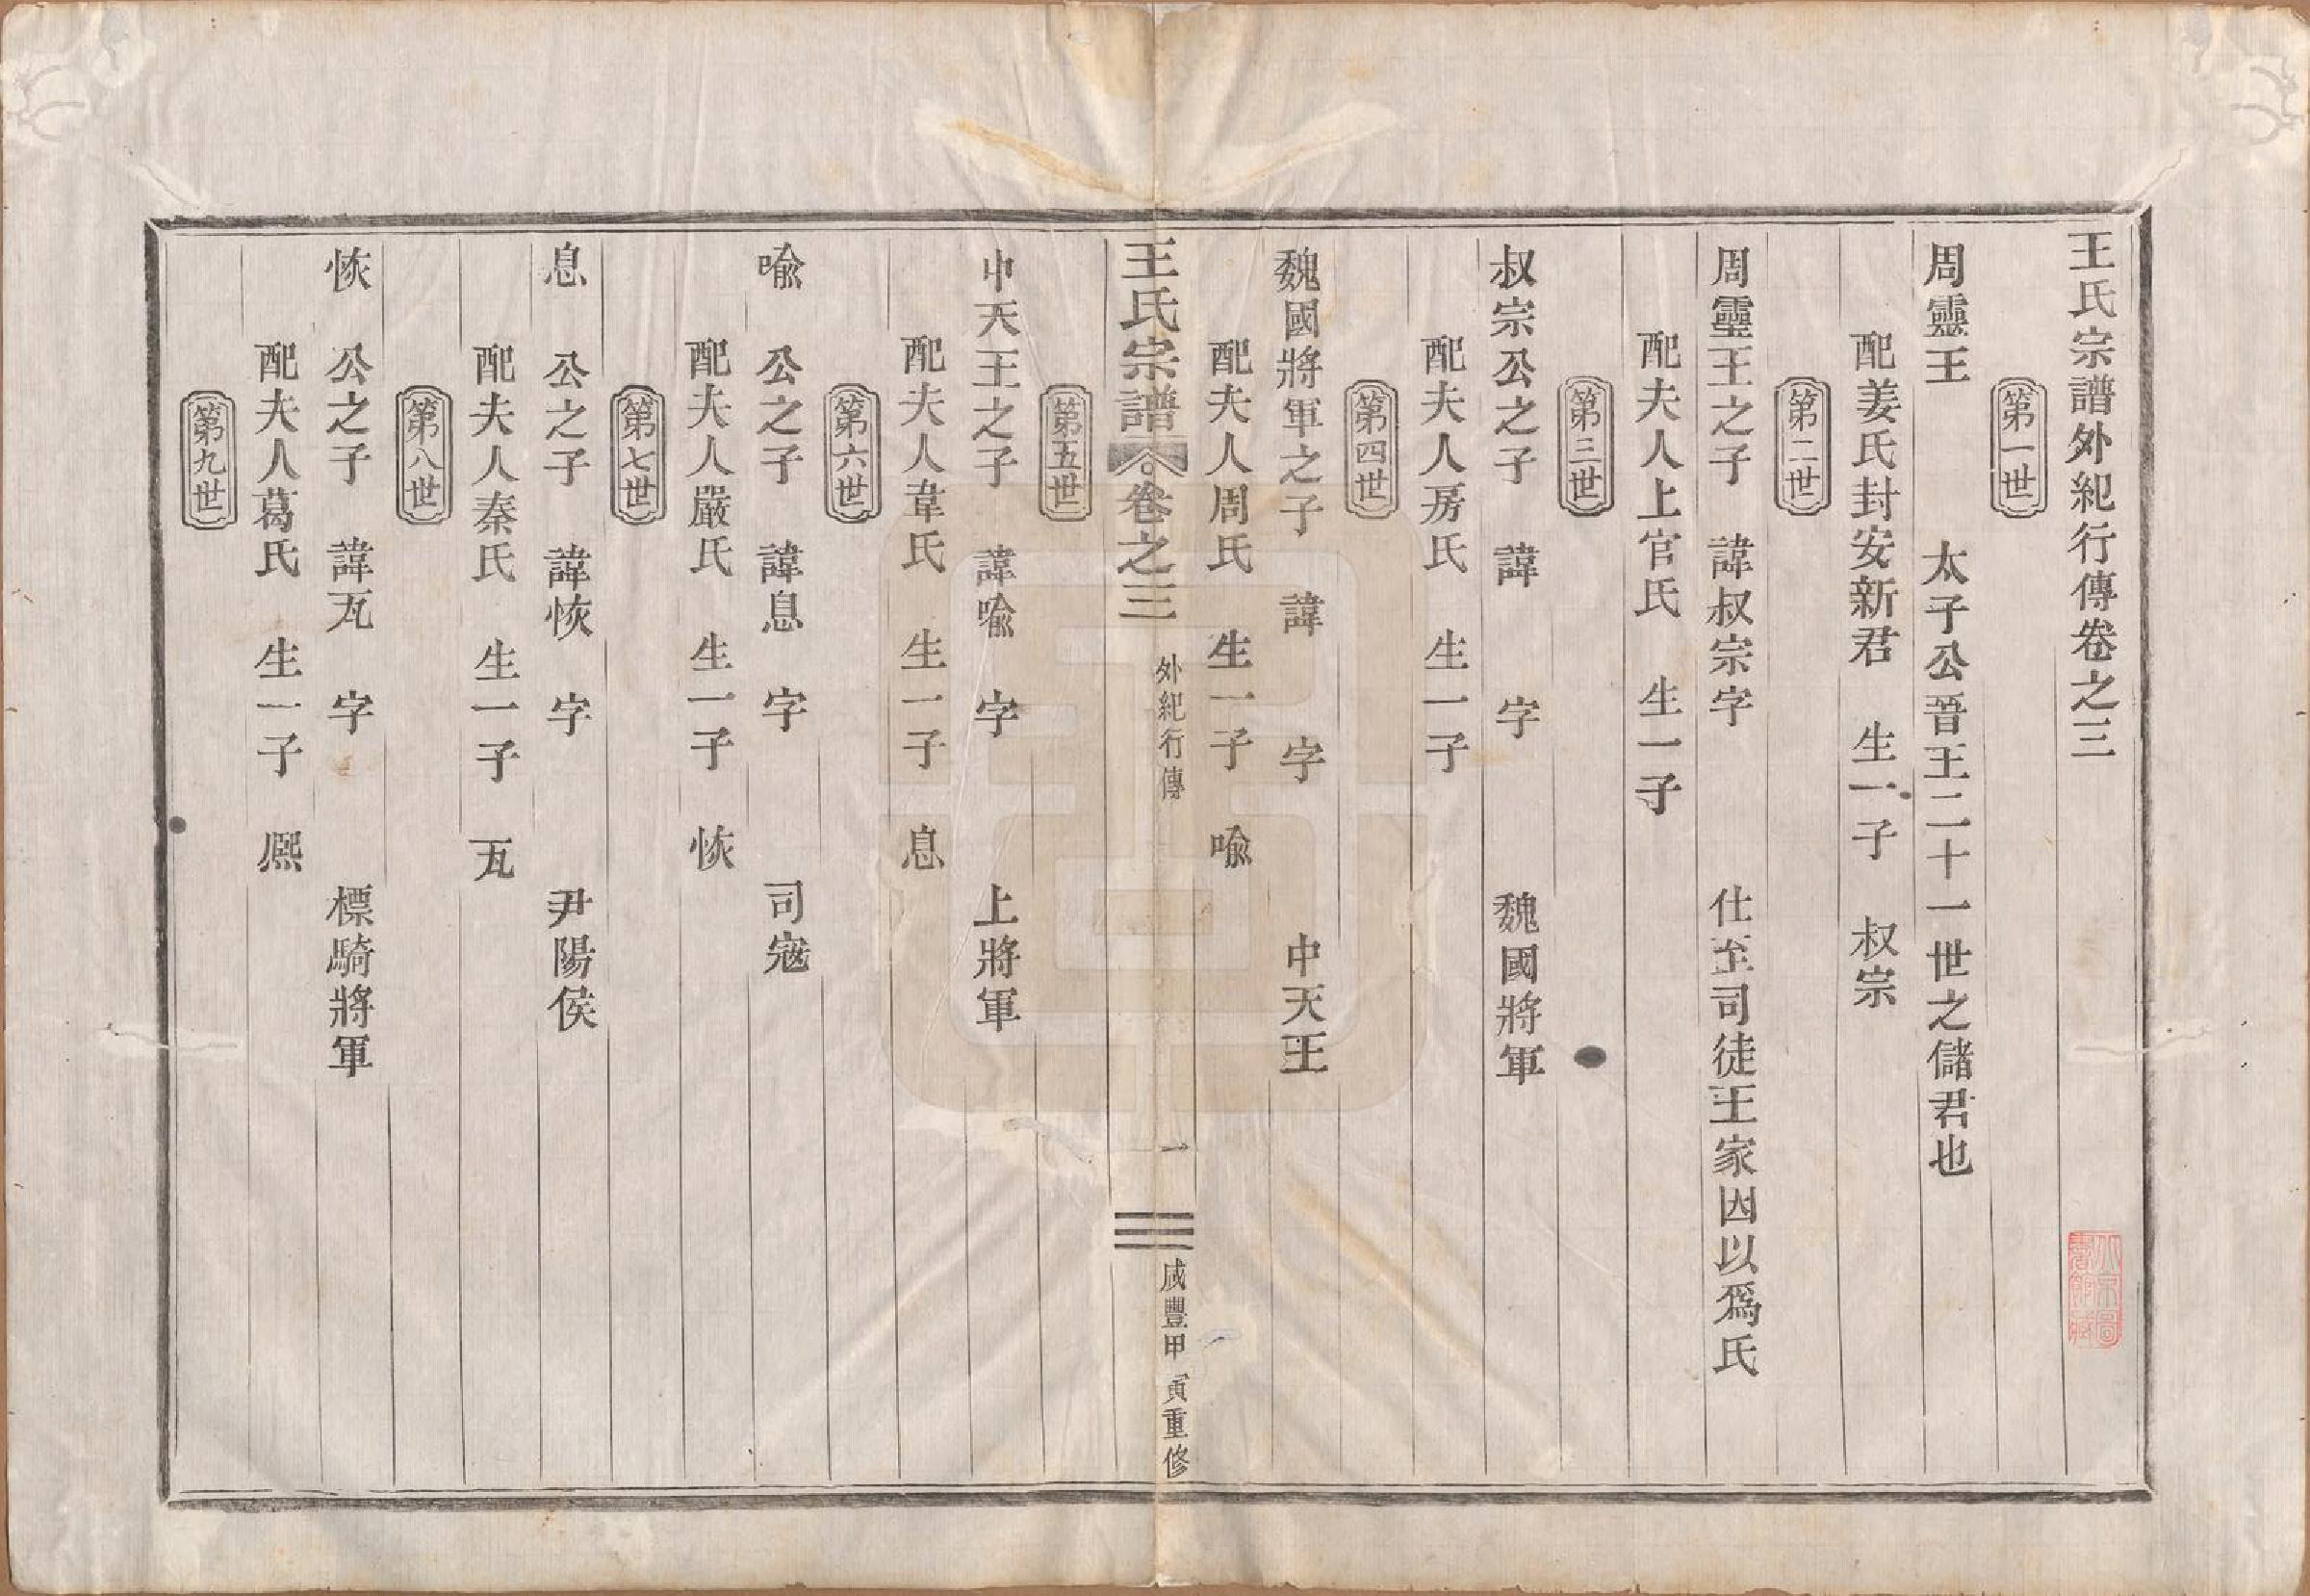 王氏宗譜外紀行傳卷之三
第一世
周靈王 太子公晉王二十一世之儲君也
配姜氏封安新君 生一子 叔宗
第二世
周靈王之子 諱叔宗字 仕至司徒王家因以爲氏
配夫人上官氏 生一子
第三世
叔宗公之子 諱 字 魏國將軍
配夫人房氏 生一子
第四世
魏國將軍之子 諱 字 中天王
配夫人周氏 生一子 喻
王氏宗譜 卷之三 外紀行傳 一 咸豐甲寅重修
第五世
中天王之子 諱喻 字 上將軍
配夫人韋氏 生一子 息
第六世
喻 公之子 諱息 字 司寇
配夫人嚴氏 生一子 恢
第七世
息 公之子 諱恢 字 尹陽侯
配夫人秦氏 生一子 瓦
第八世
恢 公之子 諱瓦 字 標騎將軍
配夫人葛氏 生一子 熈
第九世